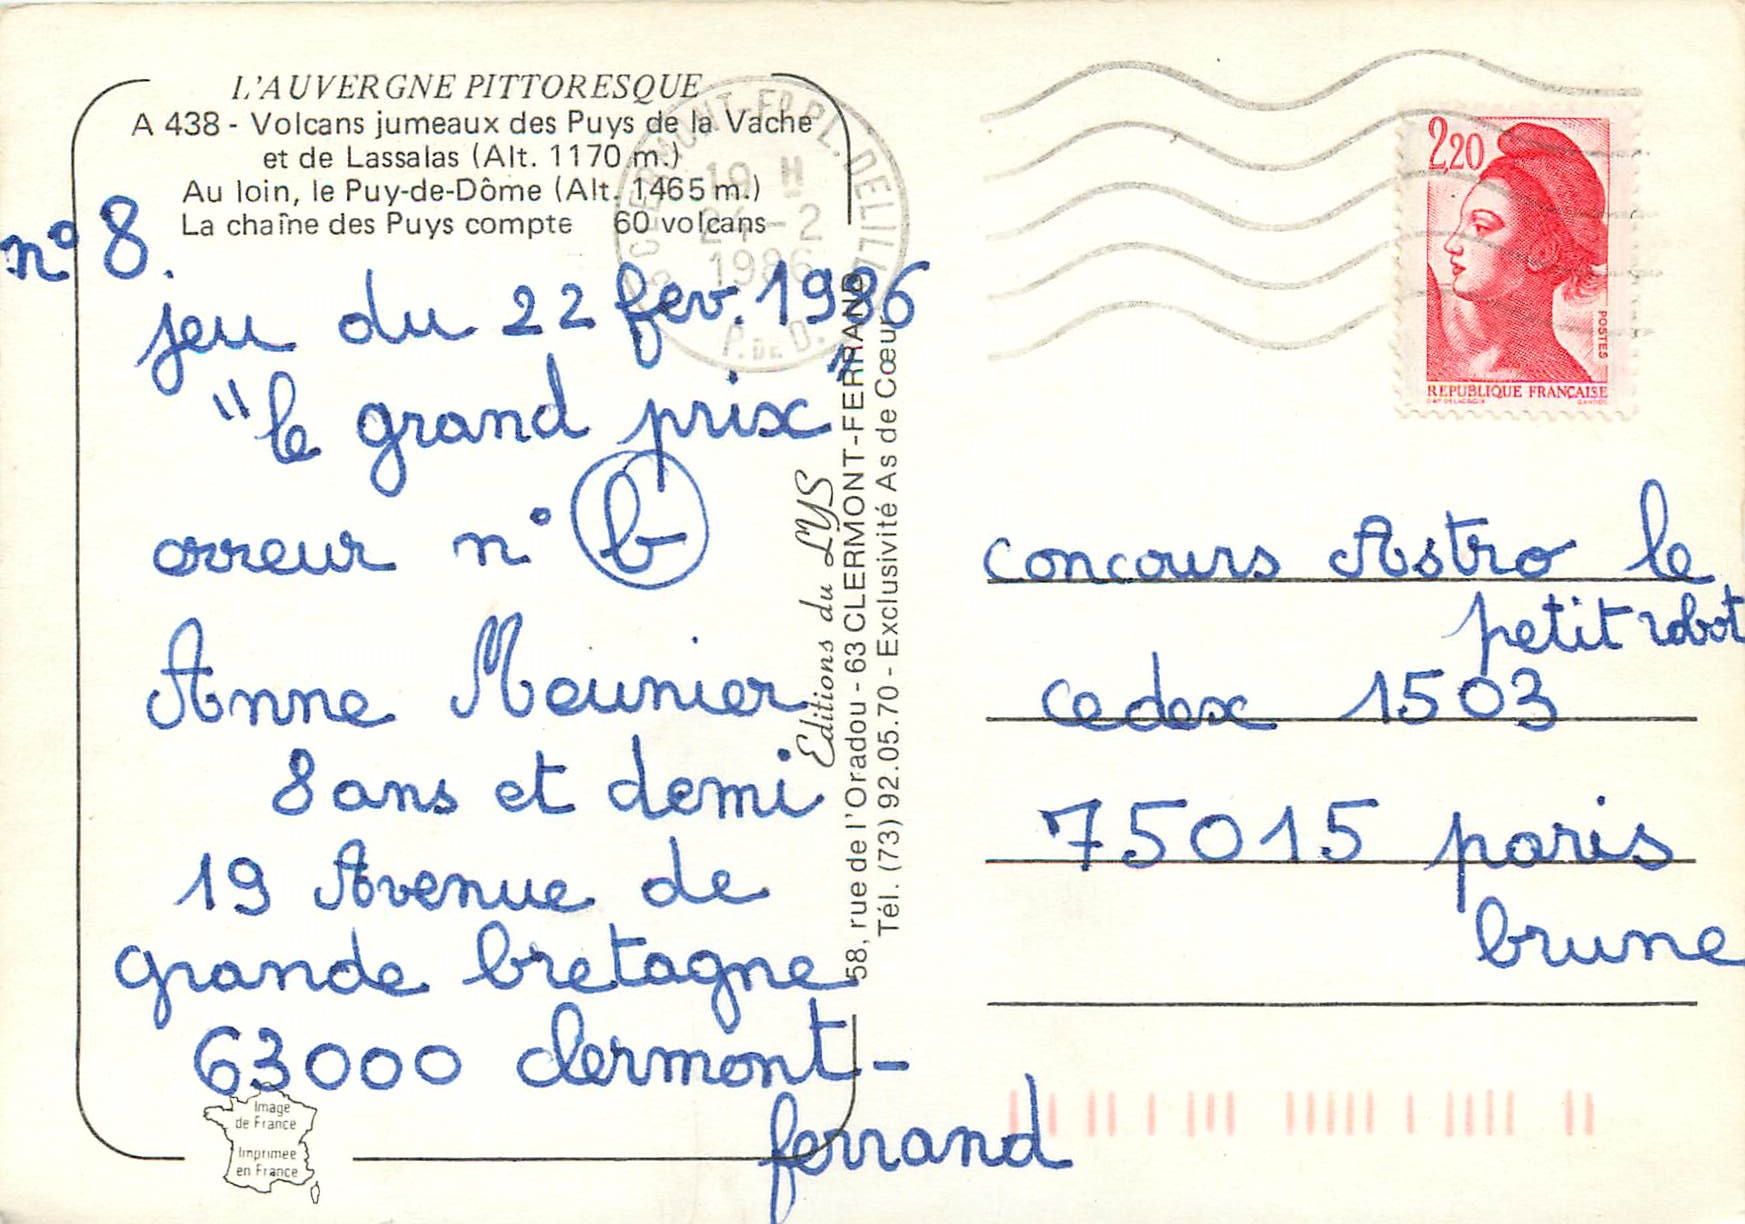 L'AUVERGNE PITTORESQUE
A 438 - Volcans jumeaux des Puys de la Vache
et de Lassalas (Alt. 1170 m.)
Au loin, le Puy-de-Dôme (Alt. 1465 m.)
La chaîne des Puys compte 60 volcans
n° 8
jeu du 22 fev. 1986
"le grand prix"
erreur n° b
Anne Meunier
8 ans et demi
19 Avenue de
grande bretagne
63000 clermont-
ferrand
Image
de France
Imprimée
en France
Editions du LYS
58, rue de l'Oradou - 63 CLERMONT-FERRAND
Tél. (73) 92.05.70 - Exclusivité As de Cœur
63 CLERMONT-FD PL. DELILLE
19 H
24-2
1986
P. DE D.
2,20
POSTES
REPUBLIQUE FRANÇAISE
concours Astro le
petit robot
cedex 1503
75015 paris
brune